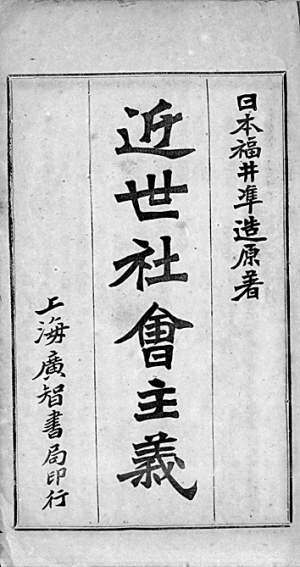 日本福井準造原著
近世社會主義
上海廣智書局印行